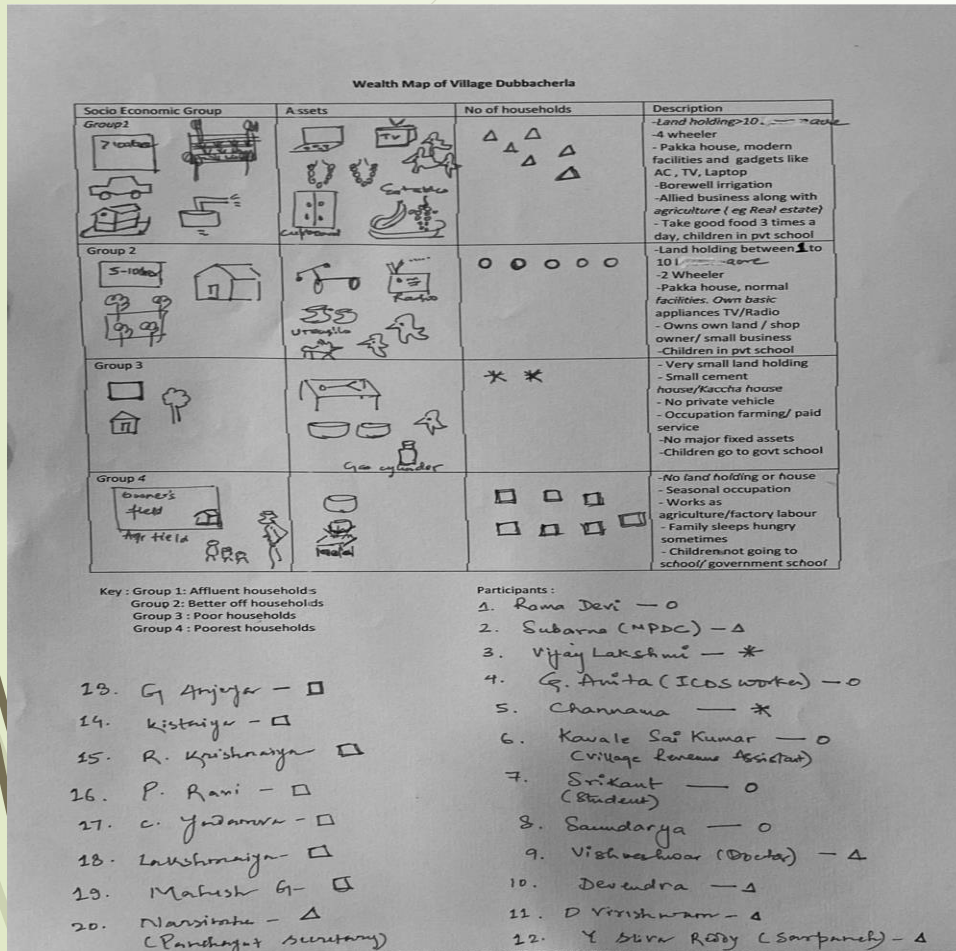 Wealth Map of Village Dubbacherla
Socio Economic Group
Assets
No of households
Description
Group1
TV
Cupboard
-Land holding>10
-4 wheeler
- Pakka house, modern
facilities and gadgets like
AC , TV, Laptop
-Borewell irrigation
-Allied business along with
agriculture ( eg Real estate)
- Take good food 3 times a
day, children in pvt school
Group 2
Radio
Utensils
-Land holding between 1 to
10
-2 Wheeler
-Pakka house, normal
facilities. Own basic
appliances TV/Radio
- Owns own land / shop
owner/ small business
-Children in pvt school
Group 3
Gas cylinder
- Very small land holding
- Small cement
house/Kaccha house
- No private vehicle
- Occupation farming/ paid
service
-No major fixed assets
-Children go to govt school
Group 4
Owner's
field
Agr field
-No land holding or house
- Seasonal occupation
- Works as
agriculture/factory labour
- Family sleeps hungry
sometimes
- Children not going to
school/ government school
Key : Group 1: Affluent households
Group 2: Better off households
Group 3 : Poor households
Group 4 : Poorest households
Participants :
1. Rama Devi — O
2. Subarna (MPDC) — Δ
3. Vijay Lakshmi — *
4. G. Anita (ICDS worker) — O
5. Channama — *
6. Kavale Sai Kumar — O
(Village Revenue Assistant)
7. Srikant — O
(Student)
8. Saundarya — O
9. Vishweshwar (Doctor) — Δ
10. Devendra — Δ
11. D — Δ
12. Y Reddy (Sarpanch) — Δ
13. G Anjeya — □
14. Kistaiya — □
15. R. Krishnaiya □
16. P. Rani — □
17. C. — □
18. Lakshmaiya — □
19. Mahesh G — □
20. — Δ
(Panchayat Secretary)